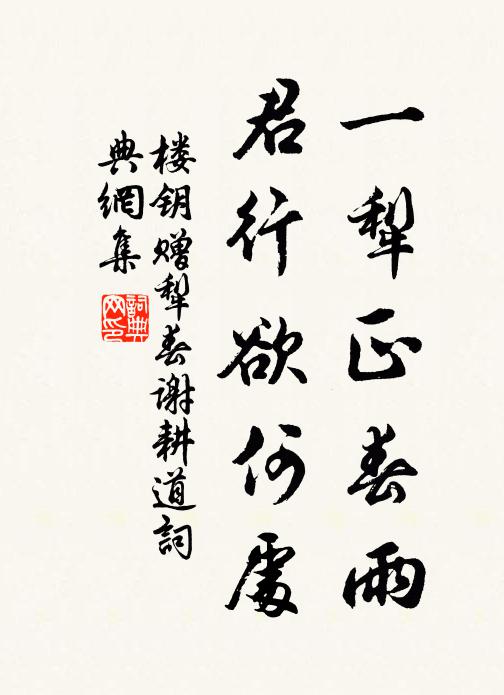 一犁正春雨
君行欲何處
楼钥赠犁春谢耕道詞
典網集
詞典
网印